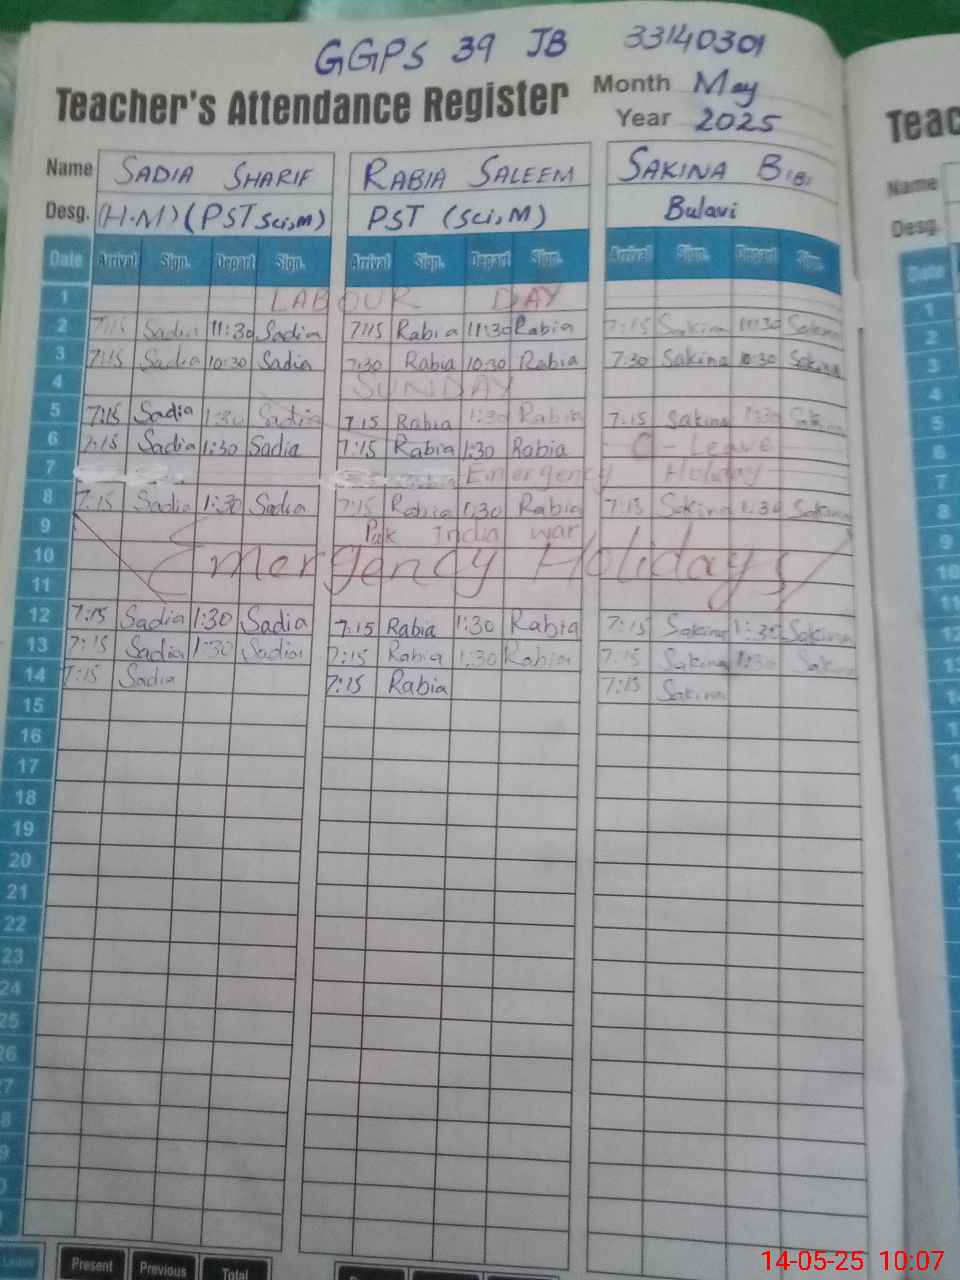 GGPS 39 JB 33140301
Teacher's Attendance Register Month May
Year 2025
Teac
Name SADIA SHARIF RABIA SALEEM SAKINA BIBI
Name
Desg. (H.M) (PST Sci,M) PST (Sci,M) Bulavi
Desg.
Date Arrival Sign. Depart Sign. Arrival Sign. Depart Sign. Arrival Sign. Depart Sign. Date
1 LABOUR DAY 1
2 7:15 Sadia 11:30 Sadia 7:15 Rabia 11:30 Rabia 7:15 Sakina 11:30 Sakina 2
3 7:15 Sadia 10:30 Sadia 7:30 Rabia 10:30 Rabia 7:30 Sakina 10:30 Sakina 3
4 SUNDAY 4
5 7:15 Sadia 1:30 Sadia 7:15 Rabia 1:30 Rabia 7:15 Sakina 1:30 Sakina 5
6 7:15 Sadia 1:30 Sadia 7:15 Rabia 1:30 Rabia C - Leave 6
7 Emergency Holiday 7
8 7:15 Sadia 1:30 Sadia 7:15 Rabia 1:30 Rabia 7:15 Sakina 1:30 Sakina 8
9 Pak India war 9
10 Emergency Holidays 10
11 11
12 7:15 Sadia 1:30 Sadia 7:15 Rabia 1:30 Rabia 7:15 Sakina 1:30 Sakina 12
13 7:15 Sadia 1:30 Sadia 7:15 Rabia 1:30 Rabia 7:15 Sakina 1:30 Sakina 13
14 7:15 Sadia 7:15 Rabia 7:15 Sakina
15
16
17
18
19
20
21
22
23
24
25
26
Leave Present Previous Total
14-05-25 10:07